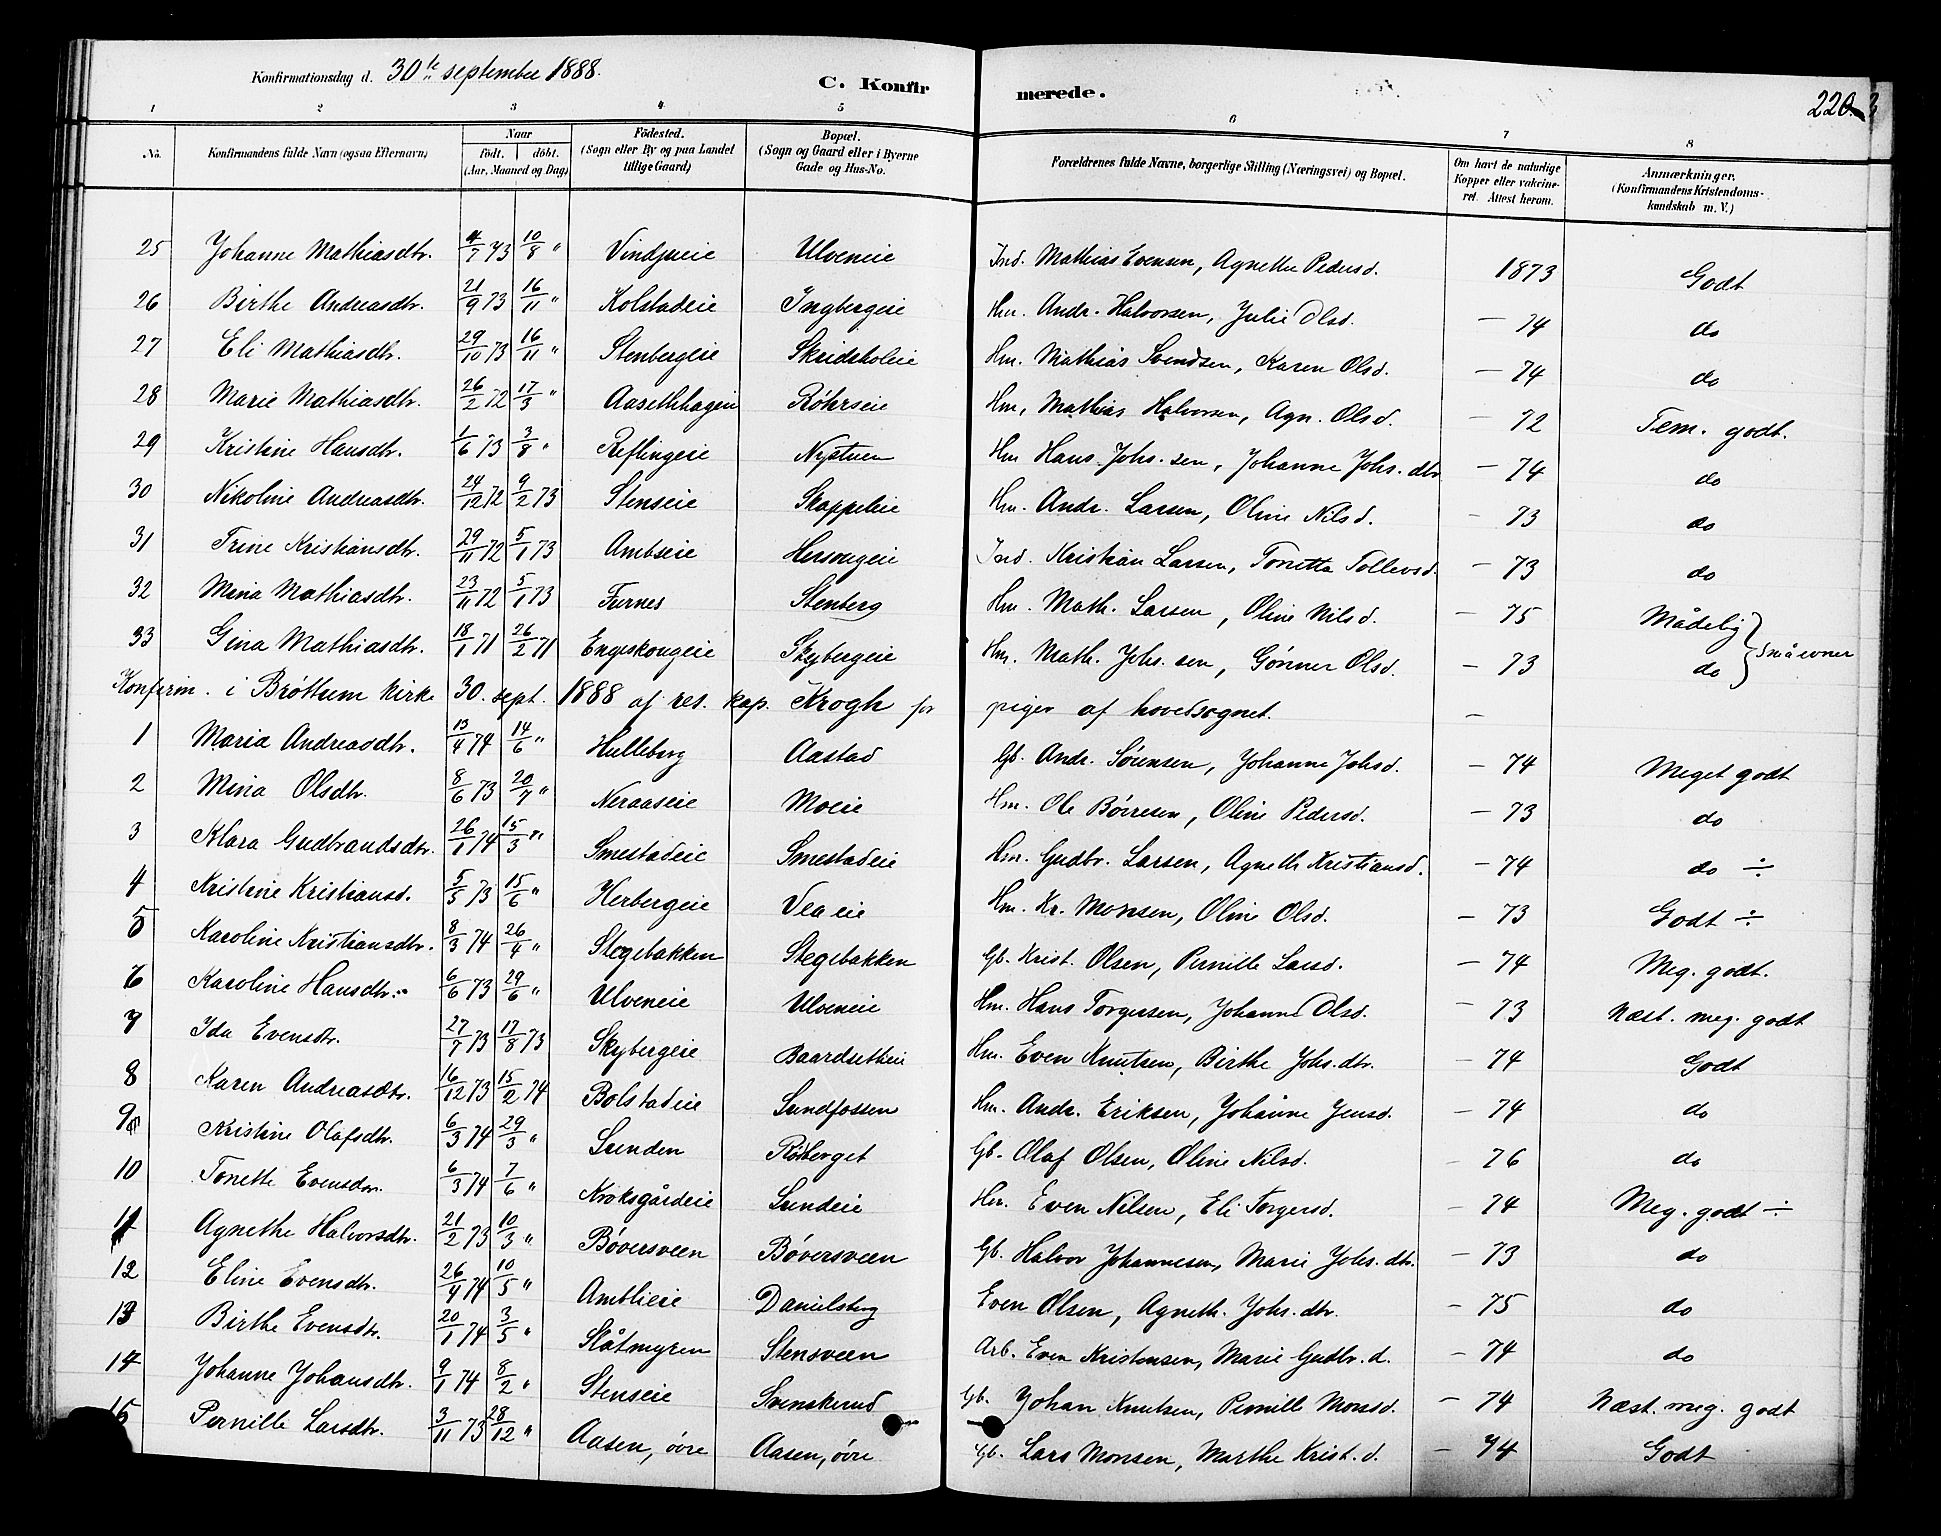 Konfirmationsdag d. 30te september 1888.
C. Konfirmerede.
220.
1 2 3 4 5 6 7 8
No. Konfirmandens fulde Navn (ogsaa Efternavn) Naar födt. döbt. (Aar, Maaned og Dag) Födested. (Sogn eller By og paa Landet tillige Gaard) Bopæl. (Sogn og Gaard eller i Byerne Gade og Hus-No. Forældrenes fulde Navne, borgerlige Stilling (Næringsvei) og Bopæl. Om havt de naturlige Kopper eller vakcineret. Attest herom. Anmærkninger. (Konfirmandens Kristendomskundskab m. V.)
25 Johanne Mathiasdtr. 4/7 73 10/8 " Vindjueie Ulveneie Ind. Mathias Evensen, Agnethe Pedersd. 1873 Godt
26 Birthe Andreasdtr. 21/9 73 16/11 " Kolstadeie Ingbergeie Hm. Andr. Halvorsen, Julie Olsd. — 74 do
27 Eli Mathiasdtr. 29/10 73 16/11 " Stenbergeie Skridsholeie Hm. Mathias Svendsen, Karen Olsd. — 74 do
28 Marie Mathiasdtr. 26/2 72 17/3 " Aasethhagen Röhrseie Hm, Mathias Halvorsen, Agn. Olsd. — 72 Tem. godt.
29 Kristine Hansdtr. 1/6 73 3/8 " Reflingeie Nystuen Hm Hans Johs.sen, Johanne Johs.dtr — 74 do
30 Nikoline Andreasdtr. 24/12 72 9/2 73 Stenseie Skappeleie Hm. Andr. Larsen, Oline Nilsd. — 73 do
31 Trine Kristiansdtr. 29/11 72 5/1 73 Ambseie Hersougeie Ind. Kristian Larsen, Tonetta Tollevsd. — 73 do
32 Mina Mathiasdtr. 23/11 72 5/1 73 Furnes Stenberg Hm. Math. Larsen, Oline Nilsd. — 75 Mådelig } Små evner
33 Gina Mathiasdtr. 18/1 71 26/2 71 Engeskougeie Skybergeie Hm. Math. Johs.sen, Gönner Olsd. — 73 do
Konfirm. i Bröttum kirke 30. sept. 1888 af res. kap. Krogh for piger af hovedsognet. —
1 Maria Andreasdtr. 13/4 74 14/6 " Hulleberg Aastad Gb. Andr. Sörensen, Johanne Johsd. — 74 Meget godt
2 Mina Olsdtr. 8/6 73 20/7 " Neraaseie Moeie Hm. Ole Börresen, Oline Pedersd. — 73 do
3 Klara Gudbrandsdtr. 26/1 74 15/3 " Smestadeie Smestadeie Hm. Gudbr. Larsen, Agneth. Kristiansd. — 74 do ÷
4 Kristine Kristiansd. 5/5 73 15/6 " Herbergeie Veaeie Hm. Kr. Monsen, Oline Olsd. — 73 Godt ÷
5 Karoline Kristiansdtr. 8/3 74 26/4 " Stegebakken Stegebakken Gb. Krist. Olsen, Pernille Larsd. — 74 Meg. godt.
6 Karoline Hansdtr. 6/6 73 29/6 " Ulveneie Ulveneie Hm. Hans Torgersen, Johanne Olsd. — 73 Næst. meg. godt
7 Ida Evensdtr. 27/7 73 17/8 73 Skybergeie Baardsetheie Hm. Even Knutsen, Birthe Johs.dtr. — 74 Godt
8 Karen Andreasdtr. 16/12 73 15/2 74 Bolstadeie Sundfossen Hm. Andr. Eriksen, Johanne Jensd. — 74 do
9 Kristine Olafsdtr. 6/3 74 29/3 " Sunden Röberget Gb. Olaf Olsen, Oline Nilsd. — 76 do
10 Tonette Evensdtr. 6/3 74 7/6 " Kroksgårdeie Sundeie Hm. Even Nilsen, Eli Torgersd. — 74 Meg. godt ÷
11 Agnethe Halvorsdtr. 21/2 73 10/3 " Böversveen Böversveen Gb. Halvor Johannesen, Marie Johs.dtr. — 73 do
12 Eline Evensdtr. 26/4 74 10/5 " Amblieie Danielsberg Even Olsen, Agneth. Johs.dtr. — 75 do
13 Birthe Evensdtr. 20/1 74 3/5 " Slåtmyren Stensveen Arb. Even Kristensen, Marie Gudbr.d. — 74 do
14 Johanne Johansdtr. 9/1 74 8/2 " Stenseie Svenskerud Gb. Johan Knutsen, Pernille Monsd. — 74 Næst. meg. godt
15 Pernille Larsdtr. 3/11 73 28/12 " Aasen, övre Aasen, övre Gb. Lars Monsen, Marthe Krist.d. — 74 Godt